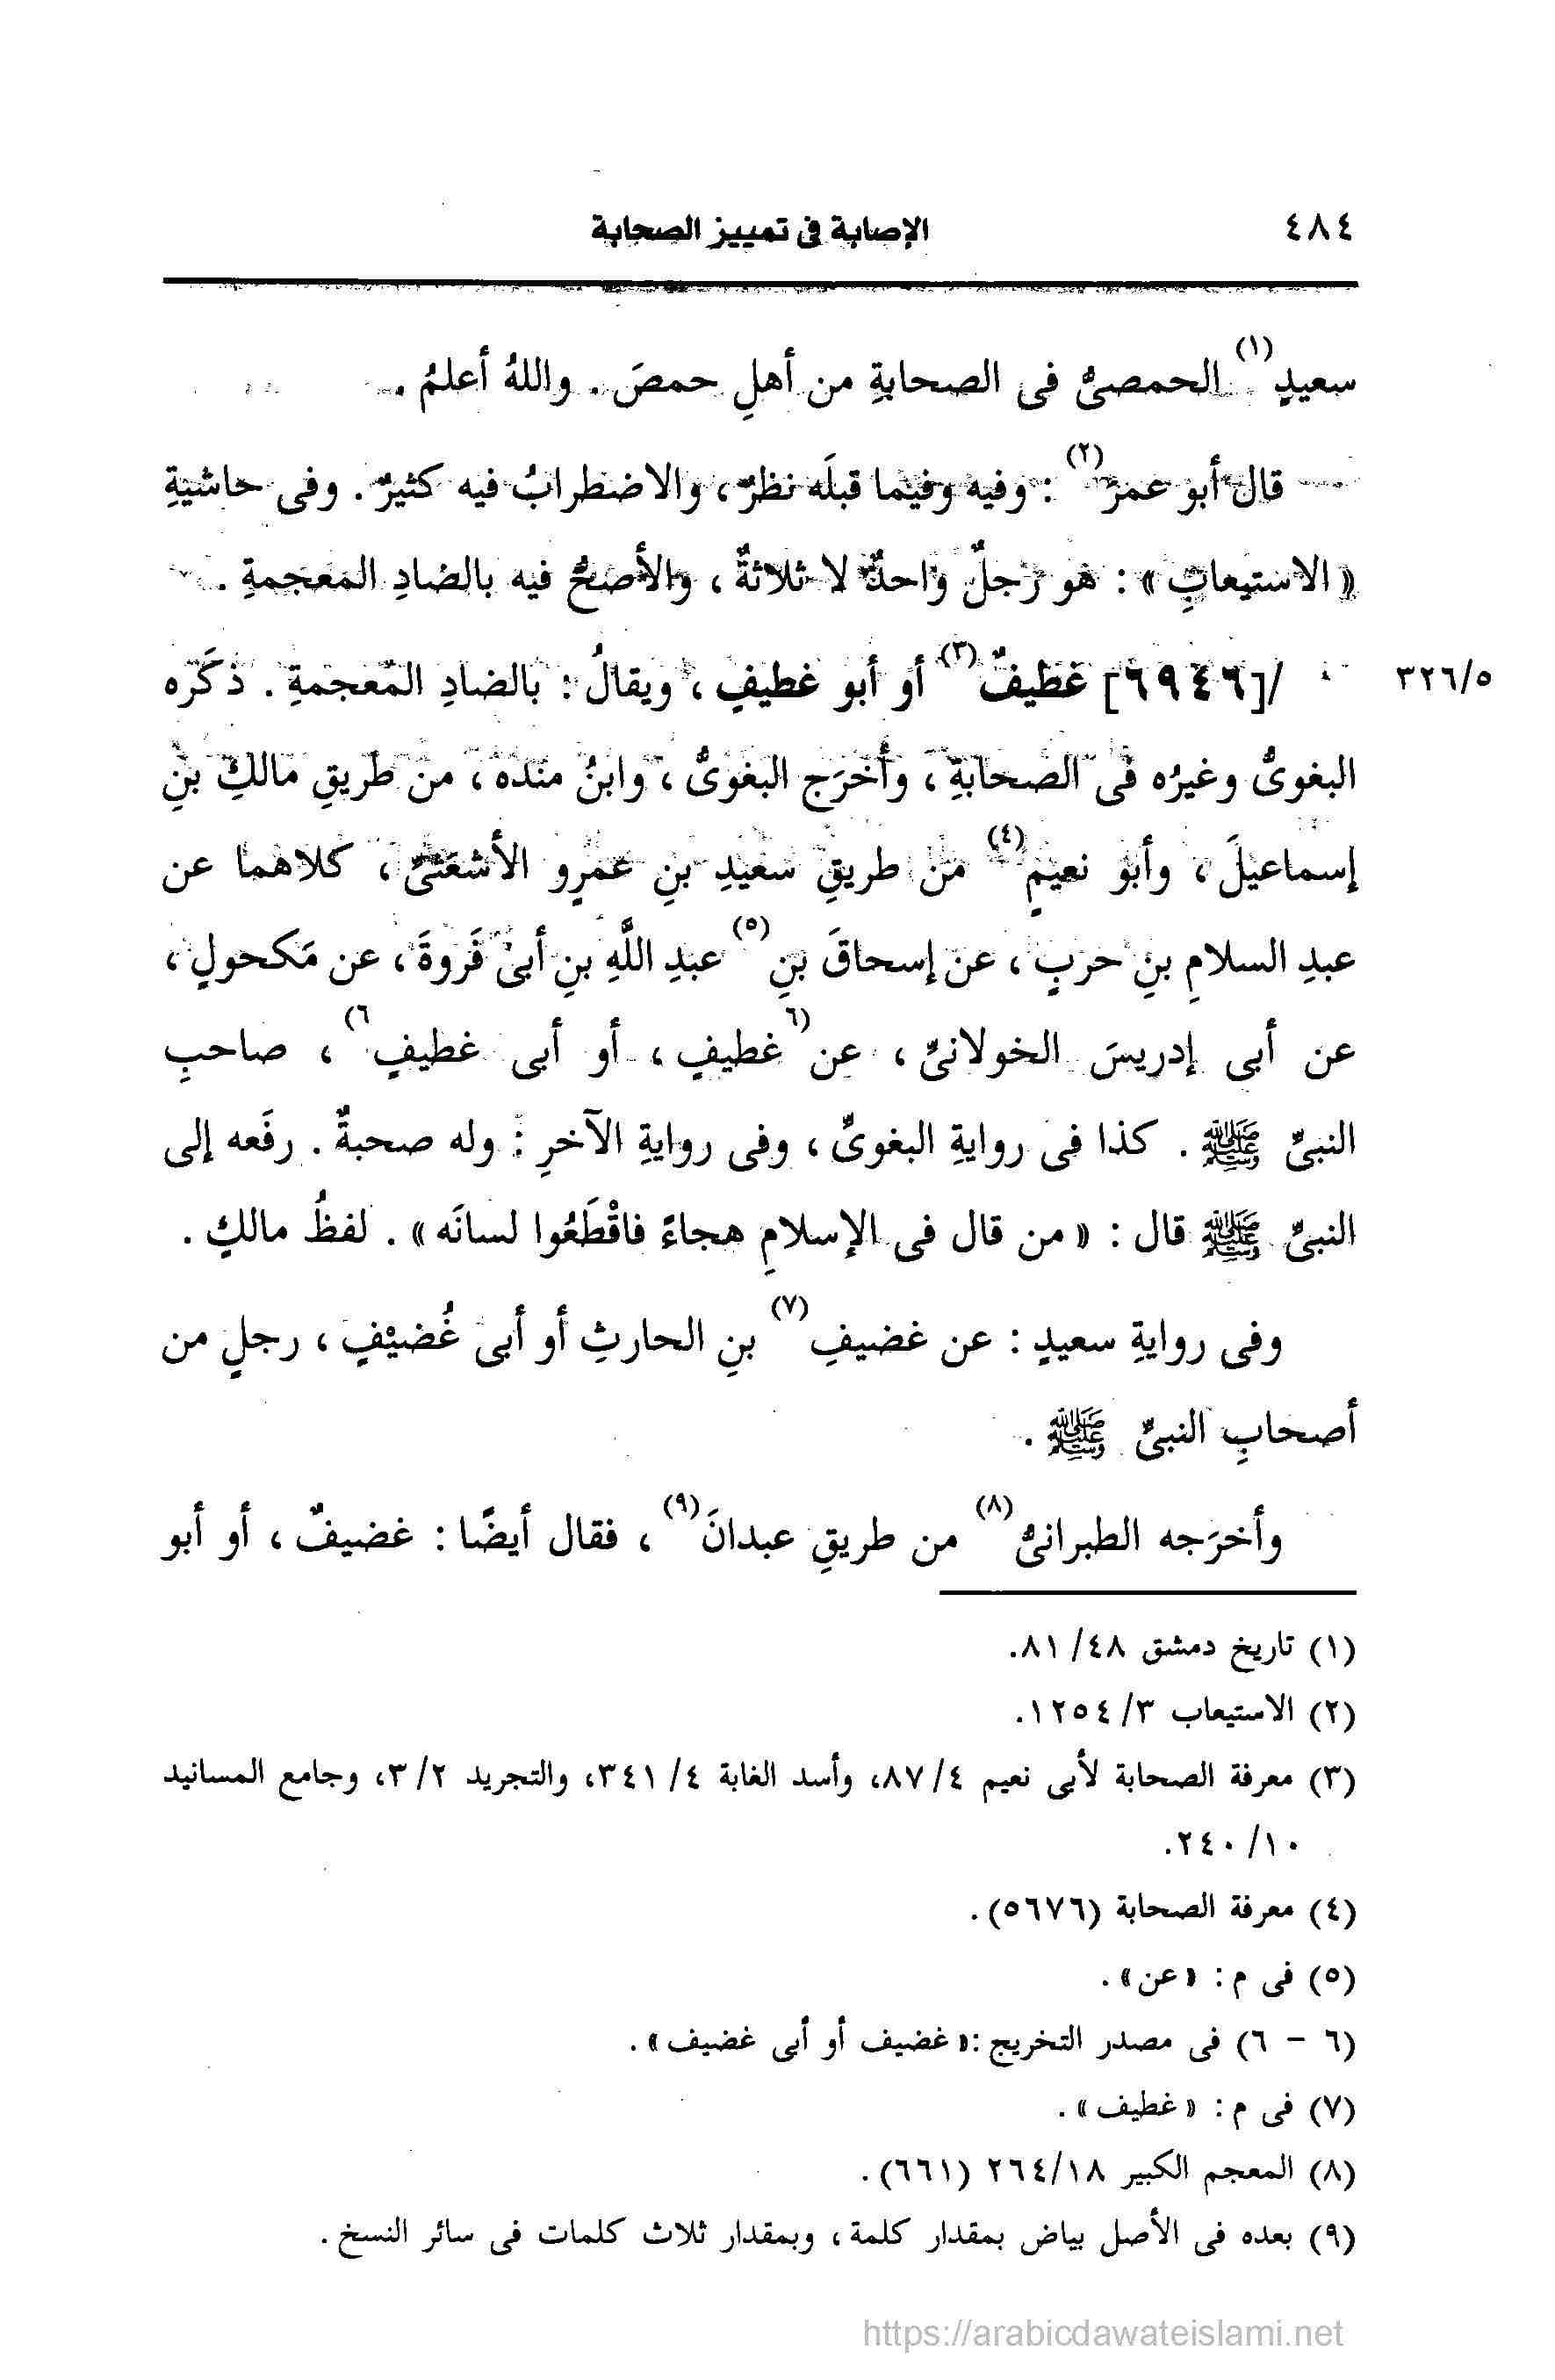 ٤٨٤ الإصابة فى تمييز الصحابة
سعيدٍ(١) الحمصىُّ فى الصحابةِ من أهلِ حمصَ . واللهُ أعلمُ .
قال أبو عمرَ(٢) : وفيه وفيما قبلَه نظرٌ ، والاضطرابُ فيه كثيرٌ . وفى حاشيةِ
« الاستيعابِ » : هو رجلٌ واحدٌ لا ثلاثةٌ ، والأصحُّ فيه بالضادِ المعجمةِ .
٣٢٦/٥ /[٦٩٤٦] غطيفٌ(٣) أو أبو غطيفٍ ، ويقالُ : بالضادِ المعجمةِ . ذكَره
البغوىُّ وغيرُه فى الصحابةِ ، وأخرَج البغوىُّ ، وابنُ منده ، من طريقِ مالكِ بنِ
إسماعيلَ ، وأبو نعيمٍ(٤) من طريقِ سعيدِ بنِ عمرٍو الأشعَثىِّ ، كلاهما عن
عبدِ السلامِ بنِ حربٍ ، عن إسحاقَ بنِ(٥) عبدِ اللَّهِ بنِ أبى فَروةَ ، عن مَكحولٍ ،
عن أبى إدريسَ الخولانىِّ ، عن (٦غطيفٍ ، أو أبى غطيفٍ٦) ، صاحبِ
النبىِّ ﷺ . كذا فى روايةِ البغوىِّ ، وفى روايةِ الآخرِ : وله صحبةٌ . رفَعه إلى
النبىِّ ﷺ قال : « من قال فى الإسلامِ هجاءً فاقْطَعُوا لسانَه » . لفظُ مالكٍ .
وفى روايةِ سعيدٍ : عن غضيفِ(٧) بنِ الحارثِ أو أبى غُضيْفٍ ، رجلٍ من
أصحابِ النبىِّ ﷺ .
وأخرَجه الطبرانىُّ(٨) من طريقِ عبدانَ(٩) ، فقال أيضًا : غضيفٌ ، أو أبو
(١) تاريخ دمشق ٤٨/ ٨١.
(٢) الاستيعاب ٣/ ١٢٥٤.
(٣) معرفة الصحابة لأبى نعيم ٤/ ٨٧، وأسد الغابة ٤/ ٣٤١، والتجريد ٢/ ٣، وجامع المسانيد
١٠/ ٢٤٠.
(٤) معرفة الصحابة (٥٦٧٦) .
(٥) فى م : «عن» .
(٦ - ٦) فى مصدر التخريج :« غضيف أو أبى غضيف» .
(٧) فى م : « غطيف» .
(٨) المعجم الكبير ٢٦٤/١٨ (٦٦١) .
(٩) بعده فى الأصل بياض بمقدار كلمة ، وبمقدار ثلاث كلمات فى سائر النسخ .
https://arabicdawateislami.net